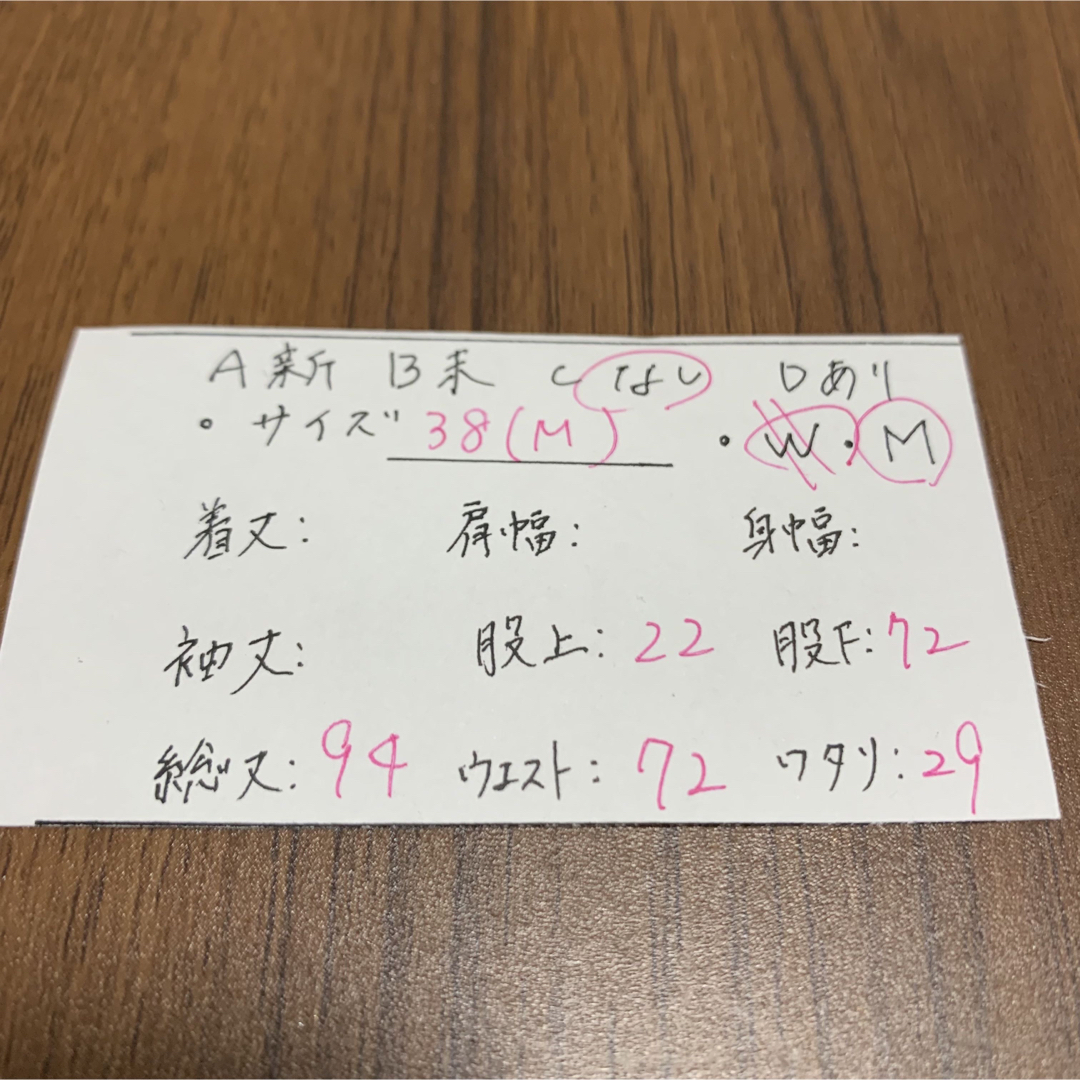 A 新 B 未 C なし D あり
・サイズ 38(M) ・W・M
着丈: 肩幅: 身幅:
袖丈: 股上:22 股下:72
総丈:94 ウエスト:72 ワタリ:29